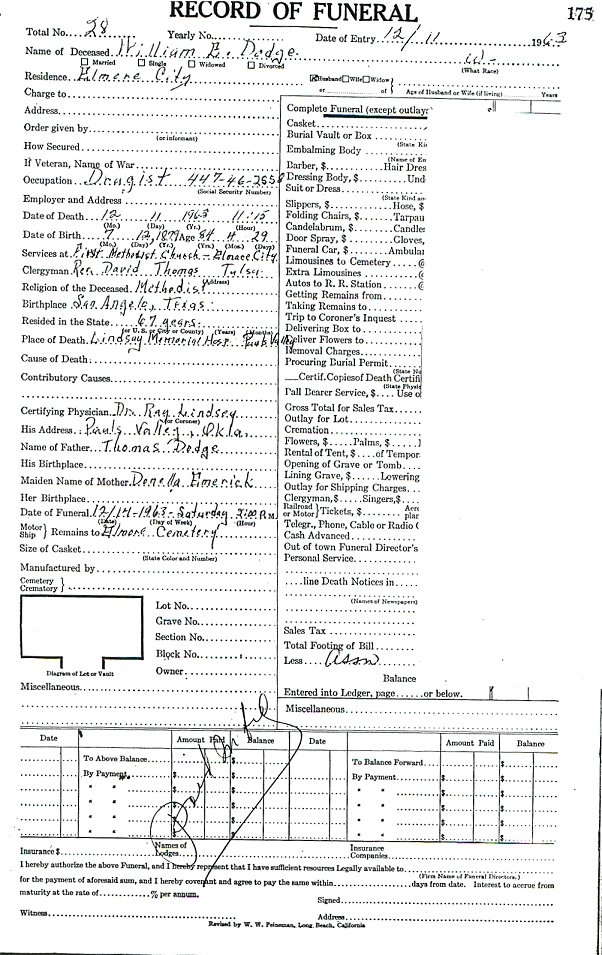 RECORD OF FUNERAL 175
Total No. 28 Yearly No. Date of Entry 12/11 1963
Name of Deceased William E. Dodge. W-
☐ Married ☐ Single ☐ Widowed ☐ Divorced (What Race)
Residence Elmore City ☒ Husband ☐ Wife ☐ Widow
or of Age of Husband or Wife (if living) Years
Charge to
Address
Order given by
(or informant)
How Secured
If Veteran, Name of War
Occupation Drugist 447-46-
(Social Security Number)
Employer and Address
Date of Death 12 11 1963 11:15
(Mo.) (Day) (Yr.) (Hour)
Date of Birth 7 12, 1879 Age 84 4 29
(Mo.) (Day) (Yr.) (Yrs.) (Mos.) (Days)
Services at First Methodist Church - Elmore City
Clergyman Rev. David Thomas Tulsa
(Address)
Religion of the Deceased Methodist
Birthplace San Angelo, Texas.
Resided in the State 67 years.
(or U. S. or City or County) (Years) (Months)
Place of Death Lindsay Memorial Hosp. Pauls Valley
Cause of Death
Contributory Causes
Certifying Physician Dr. Ray Lindsey
(or Coroner)
His Address Pauls Valley, Okla,
Name of Father Thomas Dodge
His Birthplace
Maiden Name of Mother Donella Emerick
Her Birthplace
Date of Funeral 12/14-1963 - Saturday 2:00 P.M.
(Date) (Day of Week) (Hour)
Motor Ship } Remains to Elmore Cemetery
Size of Casket
(State Color and Number)
Manufactured by
Cemetery Crematory }
Lot No.
Grave No.
Section No.
Block No.
Owner
Diagram of Lot or Vault
Miscellaneous
Complete Funeral (except outlay
Casket
Burial Vault or Box
(State Ki
Embalming Body
(Name of En
Barber, $ Hair Dres
Dressing Body, $ Und
Suit or Dress
(State Kind an
Slippers, $ Hose, $
Folding Chairs, $ Tarpau
Candelabrum, $ Candle
Door Spray, $ Gloves,
Funeral Car, $ Ambula
Limousines to Cemetery @
Extra Limousines @
Autos to R. R. Station @
Getting Remains from
Taking Remains to
Trip to Coroner's Inquest
Delivering Box to
Deliver Flowers to
Removal Charges
Procuring Burial Permit
(State Nu
Certif. Copies of Death Certifi
(State Physic
Pall Bearer Service, $ Use o
Gross Total for Sales Tax
Outlay for Lot
Cremation
Flowers, $ Palms, $
Rental of Tent, $ of Tempor
Opening of Grave or Tomb
Lining Grave, $ Lowering
Outlay for Shipping Charges
Clergyman, $ Singers, $
Railroad or Motor } Tickets, $ Aero plan
Telegr., Phone, Cable or Radio C
Cash Advanced
Out of town Funeral Director's
Personal Service
line Death Notices in
(Names of Newspapers)
Sales Tax
Total Footing of Bill
Less Assn
Balance
Entered into Ledger, page or below.
Miscellaneous
Date Amount Paid Balance Date Amount Paid Balance
To Above Balance $ To Balance Forward $
By Payment $ By Payment $
" " $ " " $
" " $ " " $
" " $ " " $
" " $ " " $
Paid In full
Insurance $ Names of Lodges Insurance Companies
I hereby authorize the above Funeral, and I hereby represent that I have sufficient resources Legally available to
(Firm Name of Funeral Directors.)
for the payment of aforesaid sum, and I hereby covenant and agree to pay the same within days from date. Interest to accrue from
maturity at the rate of % per annum. Signed
Witness Address
Revised by W. W. Feineman, Long Beach, California